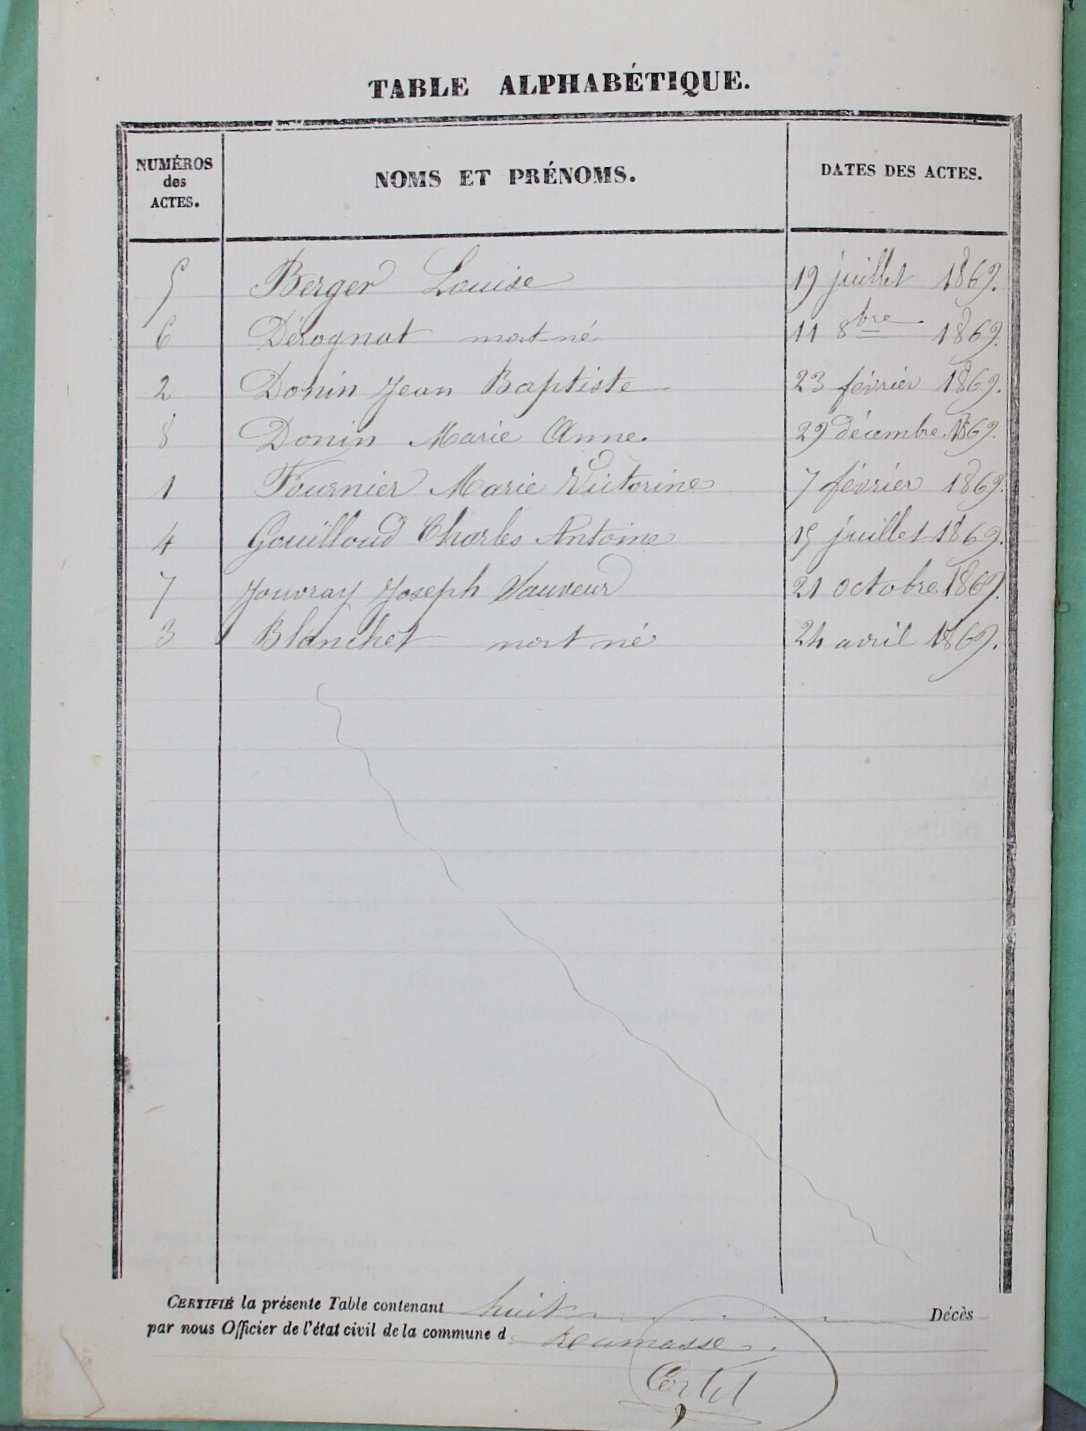 TABLE ALPHABÉTIQUE.
NUMÉROS des ACTES. NOMS ET PRÉNOMS. DATES DES ACTES.
5 Berger Louise 19 juillet 1869.
6 Dérognat mort né 11 8bre 1869.
2 Donin Jean Baptiste 23 février 1869.
8 Donin Marie Anne. 29 décembre 1869.
1 Fournier Marie Victorine 7 février 1869.
4 Gouilloud Charles Antoine 15 juillet 1869.
7 Jouvray Joseph Sauveur 21 octobre 1869.
3 Blanchet mort né 24 avril 1869.
CERTIFIÉ la présente Table contenant huit Décès
par nous Officier de l'état civil de la commune d